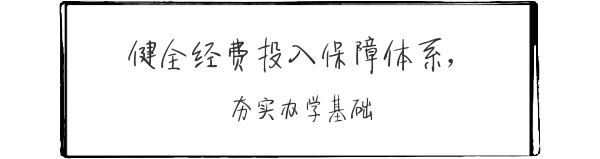 健全经费投入保障体系，
夯实办学基础